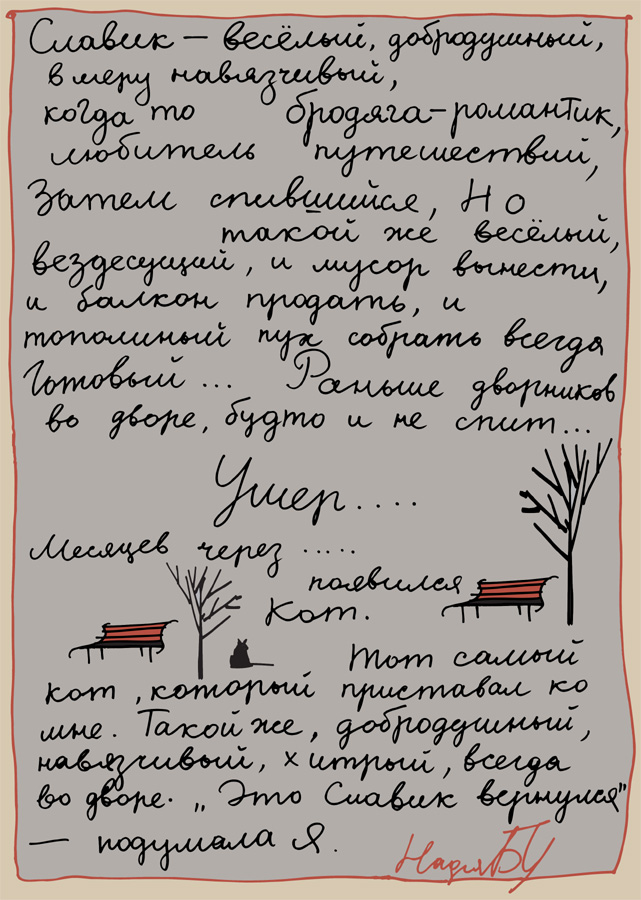 Славик — весёлый, добродушный,
в меру навязчивый,
когда то бродяга-романтик,
любитель путешествий,
Затем спившийся, Но
такой же весёлый,
вездесущий, и мусор вынести,
и балкон продать, и
тополиный пух собрать всегда
Готовый ... Раньше дворников
во дворе, будто и не спит...
Умер....
Месяцев через .....
появился
Кот.
Тот самый
кот, который приставал ко
мне. Такой же, добродушный,
навязчивый, хитрый, всегда
во дворе. „Это Славик вернулся"
— подумала Я.
НадяБУ